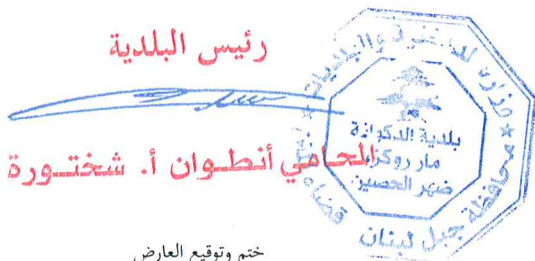 رئيس البلدية
المحامي أنطوان أ. شختورة
وزارة الداخلية والبلديات
محافظة جبل لبنان
قضاء
بلدية الدكوانة
مار روكز
ضهر الحصين
ختم وتوقيع العارض